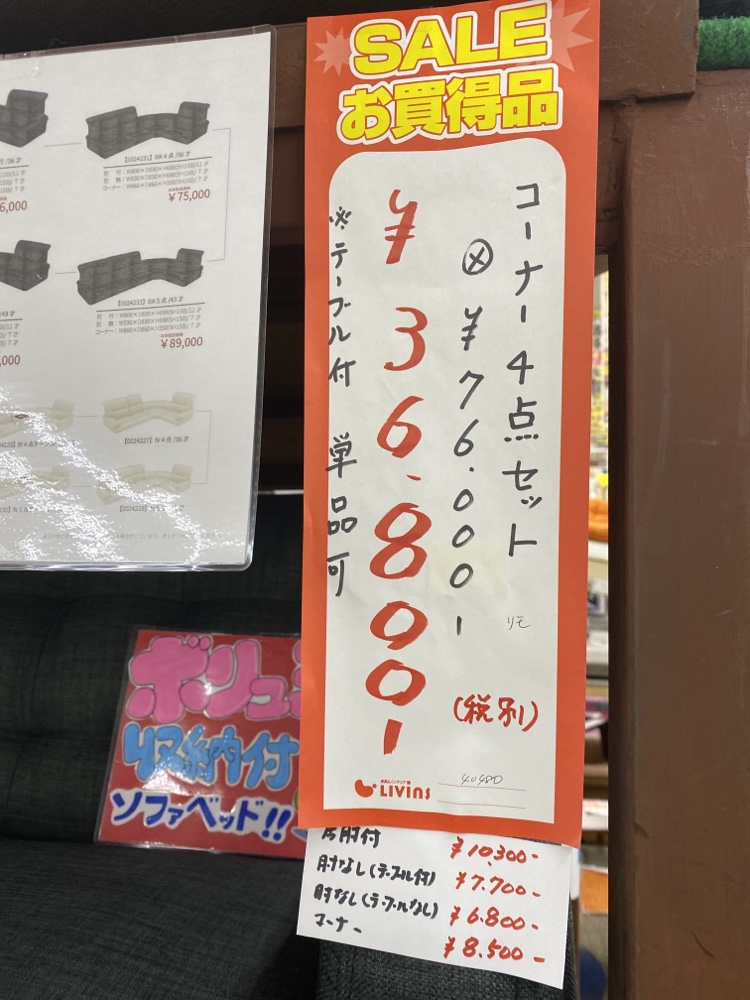 SALE
お買得品
コーナー4点セット
リモ
⊗ ¥76.000-
¥36.800-
(税別)
※テーブル付 単品可
LIVINS
40480
片肘付 ¥10,300-
肘なし(テーブル付) ¥7.700-
肘なし(テーブルなし) ¥6.800-
コーナー ¥8.500-
【D024231】BK4点/36才
¥75,000
【D024233】BK5点/43才
¥89,000
【D024227】IV4点/36才
6,000
,000
ボリュ
収納付
ソファベッド!!